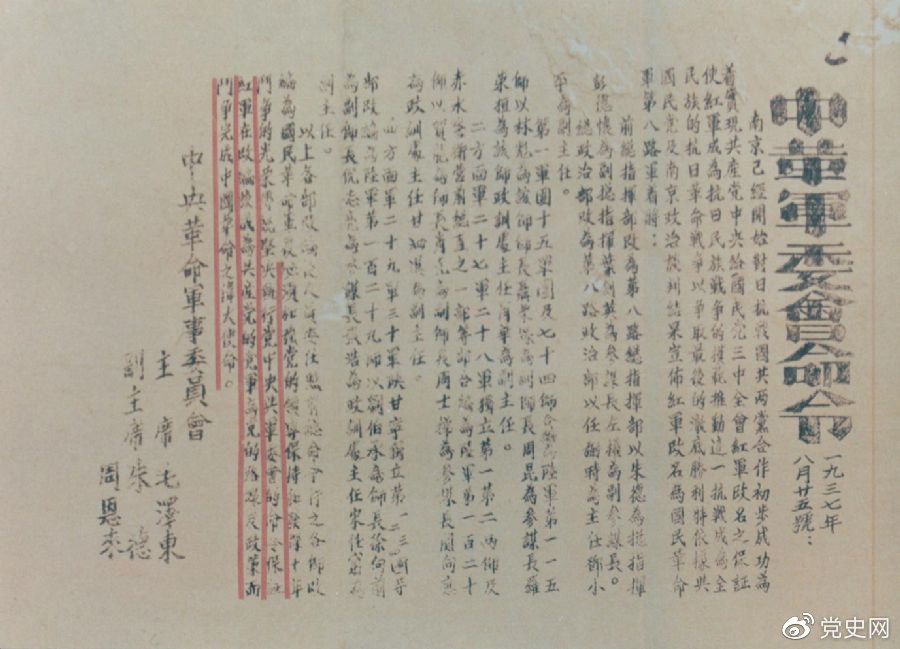 中革軍委會命令
一九三七年
八月廿五號：
南京已經開始對日抗戰國共兩黨合作初步成功為
着實現共產黨中央給國民黨三中全會紅軍改名之保証
使紅軍成為抗日民族戰爭的模範推動這一抗戰成為全
民族的抗日革命戰爭以爭取最後的澈底勝利特依據共
國民黨及南京政治談判結果宣佈紅軍改名為國民革命
軍第八路軍着將：
前總指揮部改為第八路總指揮部以朱德為總指揮
彭德懷為副總指揮葉劍英為參謀長左權為副參謀長。
總政治部改為第八路政治部以任弼時為主任鄧小
平為副主任。
第一軍團十五軍團及七十四師合編為陸軍第一一五
師以林彪為該師師長聶榮臻為副師長周昆為參謀長羅
榮桓為該師政訓處主任肖華為副主任。
二方面軍二十七軍二十八軍獨立第一第二兩師及
赤水警衛營前總直之一部等部合編為陸軍第一百二十
師以賀龍為師長蕭克為副師長周士捍為參謀長關向應
為政訓處主任甘泗淇為副主任。
四方面軍二十九軍三十軍陝甘寧獨立第一二三四等
部改編為陸軍第一百二十九師以劉伯承為師長徐向前
為副師長倪志亮為參謀長張浩為政訓處主任宋任窮為
副主任。
以上各部改編後人員委任照前總命令行之各師改
編為國民革命軍後必須加強黨的領導保持和發揮十年
鬥爭的光榮傳統堅決執行黨中央與軍委會的命令保證
紅軍在改編後成為共產黨的黨軍為黨的路線及政策而
鬥爭完成中國革命之偉大使命。
中央革命軍事委員會
主席 毛澤東
副主席 朱德
周恩來
党史网